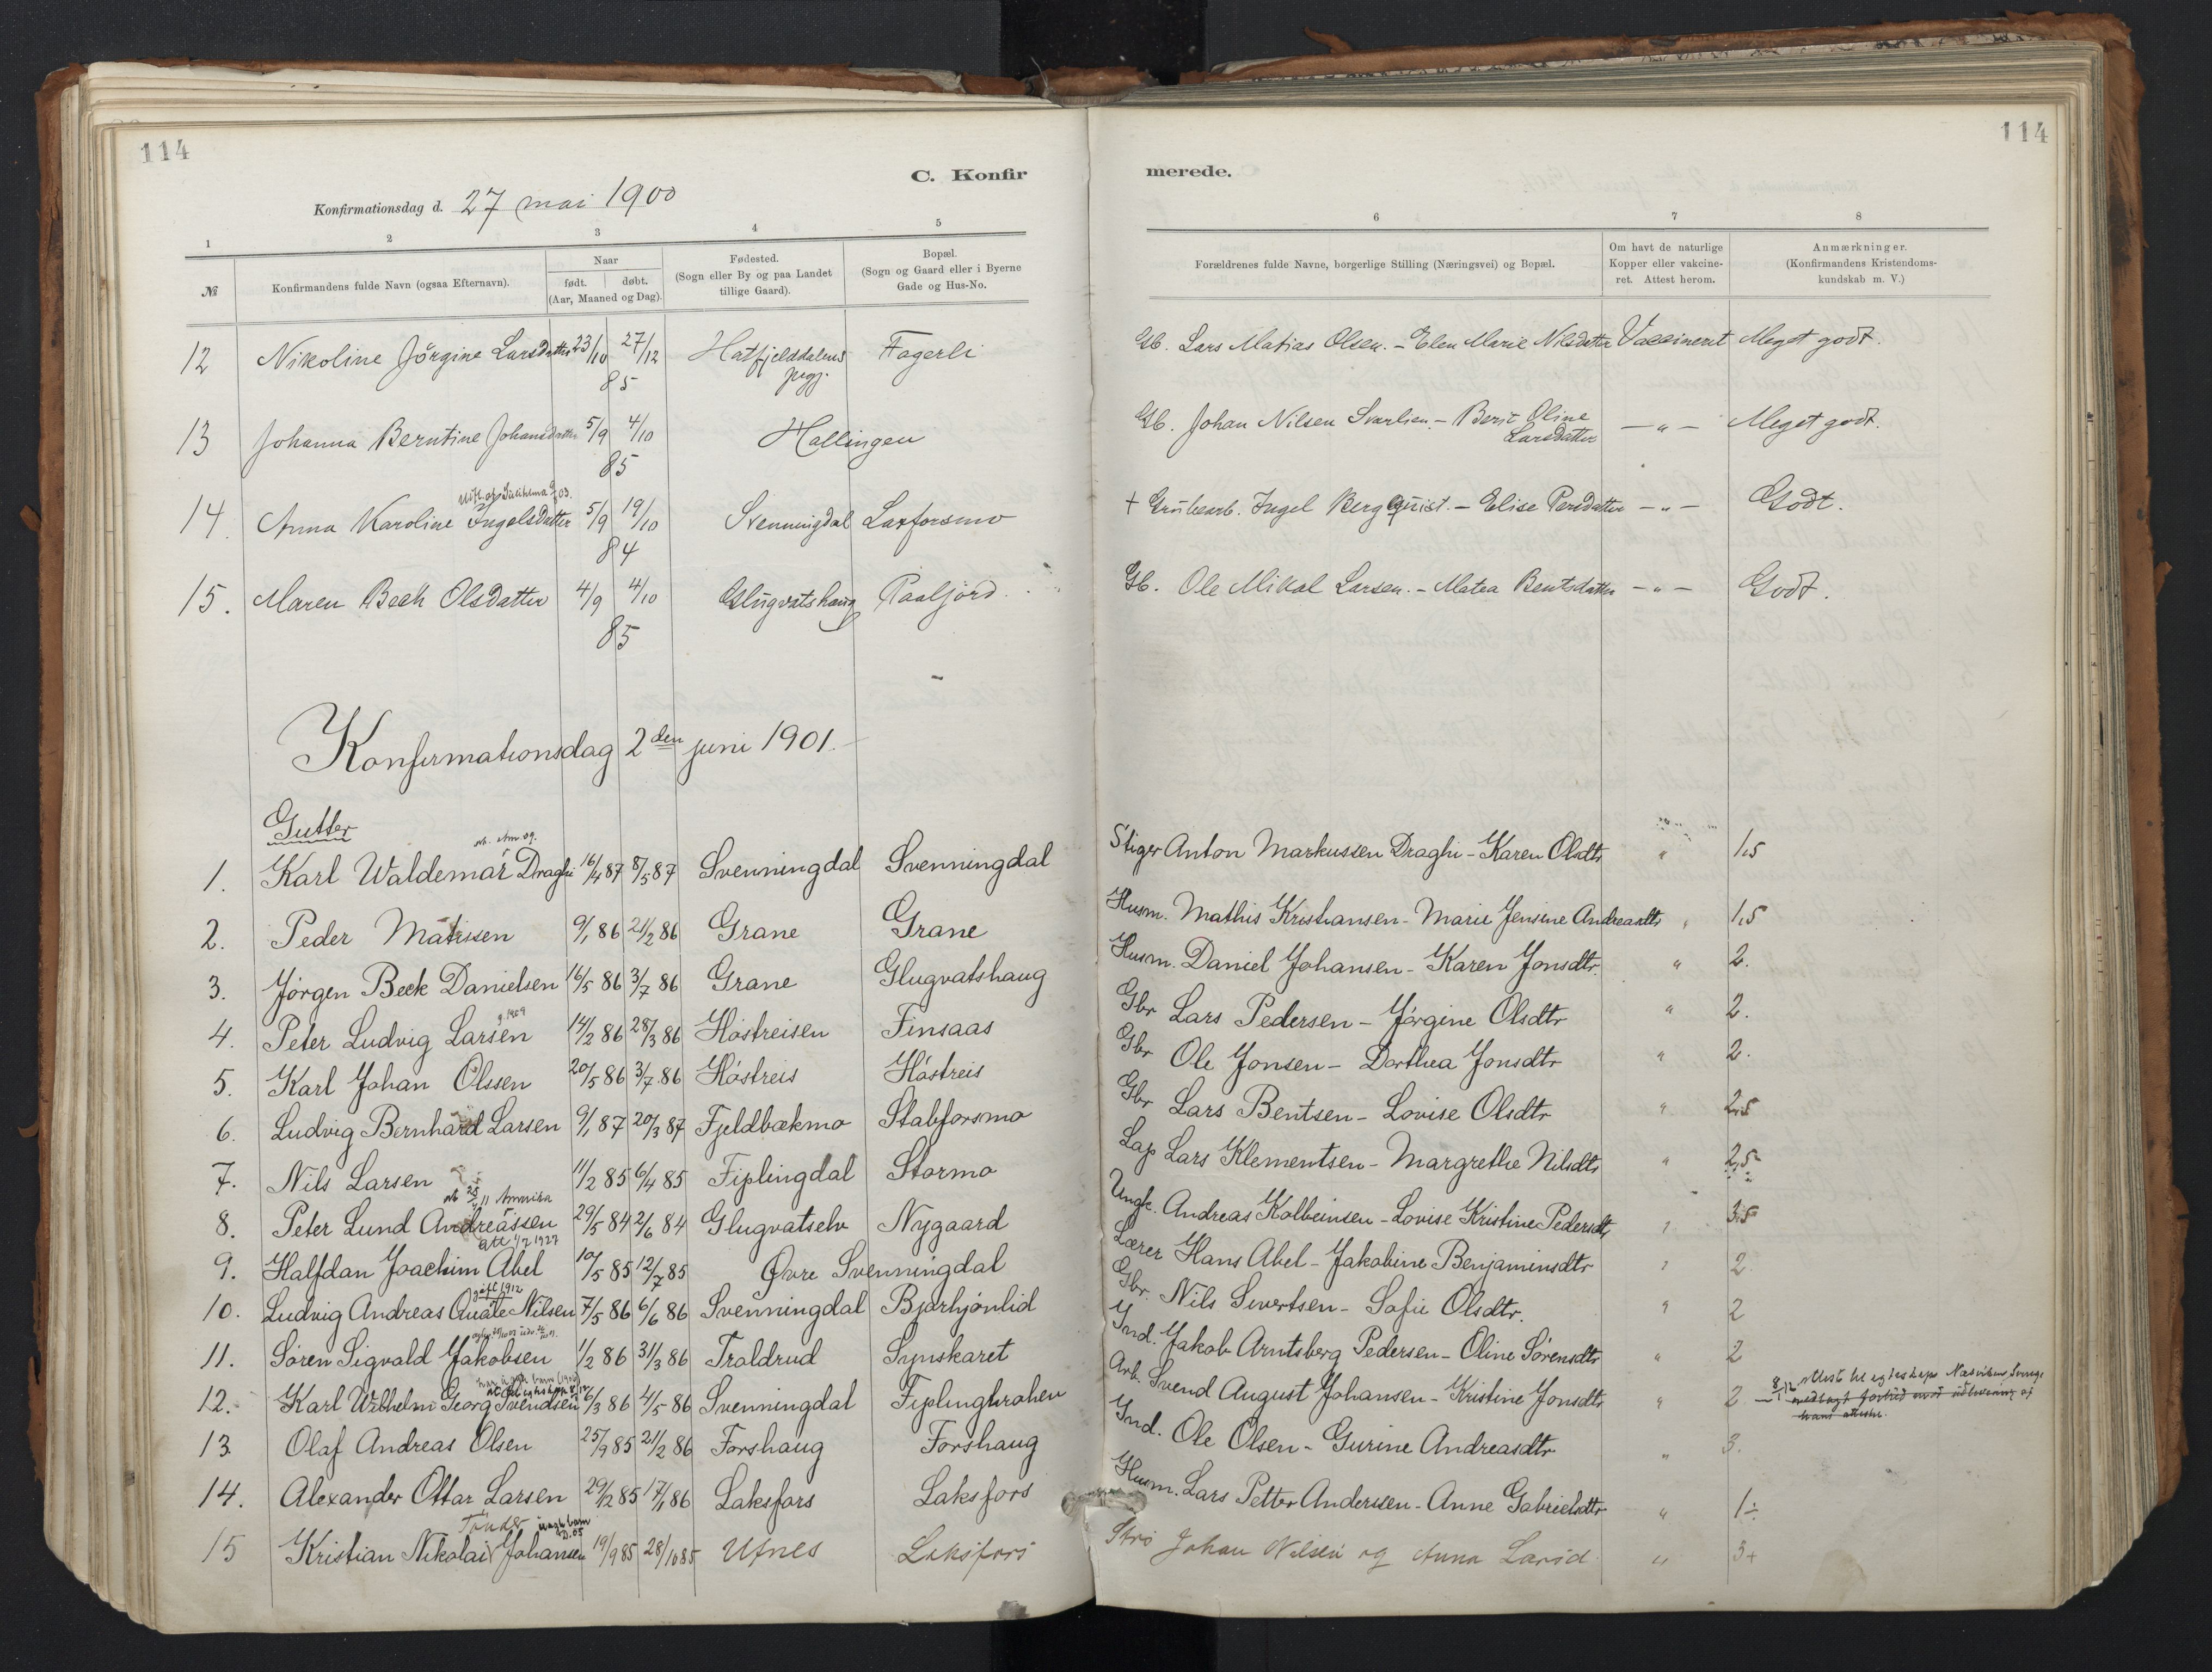 114
114
C. Konfir
merede.
Konfirmationsdag d. 27 mai 1900
1 2 3 4 5 6 7 8
№ Konfirmandens fulde Navn (ogsaa Efternavn). Naar født. døbt. (Aar, Maaned og Dag). Fødested. (Sogn eller By og paa Landet tillige Gaard). Bopæl. (Sogn og Gaard eller i Byerne Gade og Hus-No. Forældrenes fulde Navne, borgerlige Stilling (Næringsvei) og Bopæl. Om havt de naturlige Kopper eller vakcineret. Attest herom. Anmærkninger. (Konfirmandens Kristendomskundskab m. V.)
12 Nikoline Jörgine Larsdatter 23/10 27/12 85 Hatfjelddalens pgj. Fagerli Gb. Lars Matias Olsen. - Elen Marie Nilsdatter Vaccineret Meget godt.
13 Johanna Berntine Johansdatter 5/9 4/10 85 Hallingen Gb. Johan Nilsen Svarlien. - Berit Oline Larsdatter - " - Meget godt.
14. Anna Karoline Ingelsdatter 5/9 19/10 84 Svenningdal Laxforsmo + Grübearb. Ingel Bergquist. - Elise Persdatter - " - Godt.
15. Maren Beck Olsdatter 4/9 4/10 85 Glugvatshaug Paaljord Gb. Ole Mikal Larsen. - Matea Bentsdatter - " - Godt.
Konfirmationsdag 2den juni 1901.
Gutter
1. Karl Waldemar Draghi 16/4 87 8/5 87 Svenningdal Svenningdal Stiger Anton Markussen Draghi - Karen Olsdtr " 1,5
2. Peder Matissen 9/1 86 21/2 86 Grane Grane Husm. Mathis Kristiansen - Marie Jensine Andreasdtr " 1,5
3. Jörgen Beck Danielsen 16/5 86 3/7 86 Grane Glugvatshaug Husm. Daniel Johansen - Karen Jonsdtr. " 2.
4. Peter Ludvig Larsen 14/2 86 28/3 86 Höstreisen Finsaas Gbr Lars Pedersen - Jörgine Olsdtr " 2.
5. Karl Johan Olssen 20/5 86 3/7 86 Höstreis Höstreis Gbr Ole Jonsen - Dorthea Jonsdtr " 2.
6. Ludvig Bernhard Larsen 9/1 87 20/3 87 Fjeldbækmo Stabforsmo Gbr Lars Bentsen - Lovise Olsdtr " 2,5
7. Nils Larsen 11/2 85 6/4 85 Fiplingdal Stormo Lap Lars Klementsen - Margrethe Nilsdtr " 2,5
8. Peter Lund Andreassen 29/5 84 2/6 84 Glugvatselv Nygaard Ungk. Andreas Kolbeinsen - Lovise Kristine Pedersdtr " 3,5
9. Halfdan Joachim Abel 10/5 85 12/7 85 Øvre Svenningdal Lærer Hans Abel - Jakobine Benjaminsdtr " 2
gift 1912
10. Ludvig Andreas Quale Nilsen 7/5 86 6/6 86 Svenningdal Bjørhjönlid Gbr. Nils Sivertsen - Sofie Olsdtr. " 2
11. Sören Sigvald Jakobsen 1/2 86 31/3 86 Traldrud Synskaret Ind. Jakob Arntsberg Pedersen - Oline Sörensdtr " 2
12. Karl Wilhelm Georg Svendsen 6/3 86 4/5 86 Svenningdal Fiplingkroken Arb. Svend August Johansen - Kristine Jonsdtr " 2
13. Olaf Andreas Olsen 25/9 85 21/2 86 Forshaug Forshaug Ind. Ole Olsen - Gurine Andreasdtr " 3.
14. Alexander Ottar Larsen 29/12 85 17/1 86 Laksfors Laksfors Husm. Lars Petter Andersen - Anne Gabrielsdtr " 1÷
15 Kristian Nikolai Johansen 19/9 85 28/10 85 Ufnes Laksfors Johan Nilsen og Anna Larsd " 3+